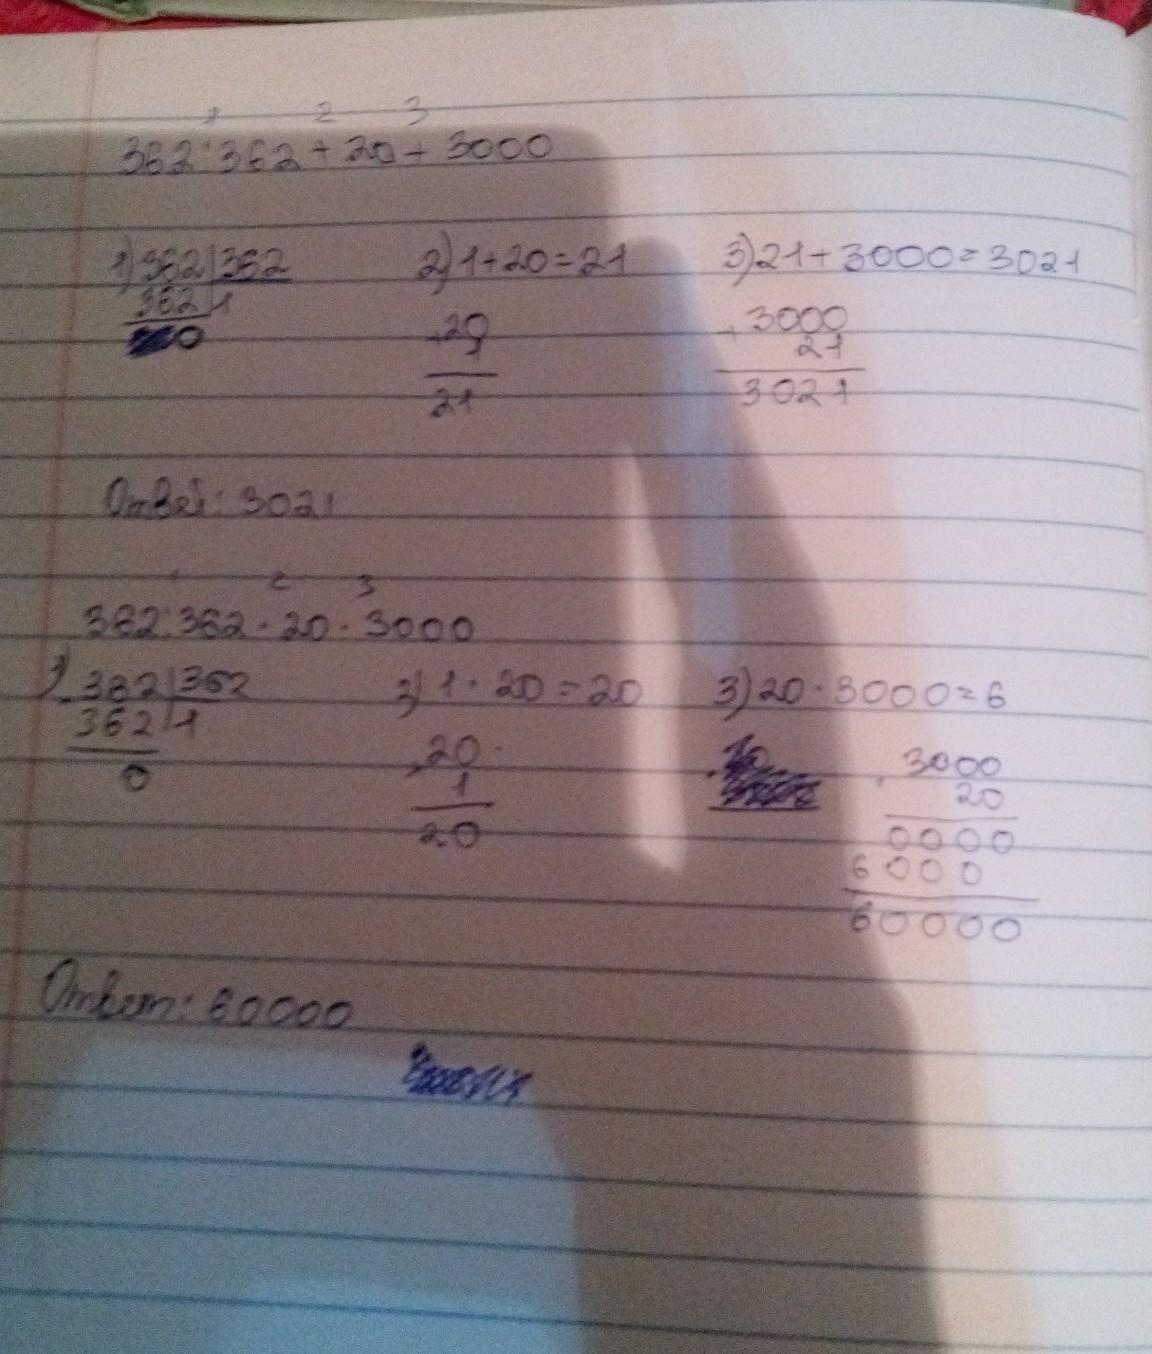 1 2 3
362:362+20+3000
1) 362 362 2) 1+20=21 3) 21+3000=3021
362 1 +20 + 3000
0 1 21
21 3021
Ответ: 3021
1 2 3
362:362·20·3000
1) 362 362 2) 1·20=20 3) 20·3000=6
362 1 20 3000
0 1 20
20 0000
6000
60000
Ответ: 60000